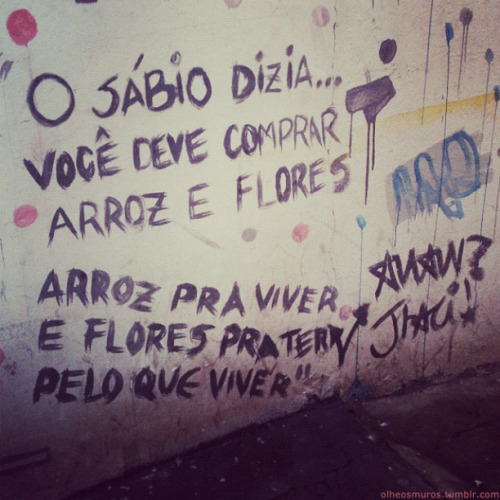 O SÁBIO DIZIA...
VOCÊ DEVE COMPRAR
ARROZ E FLORES
ARROZ PRA VIVER
E FLORES PRA TER
PELO QUE VIVER"
olheosmuros.tumblr.com